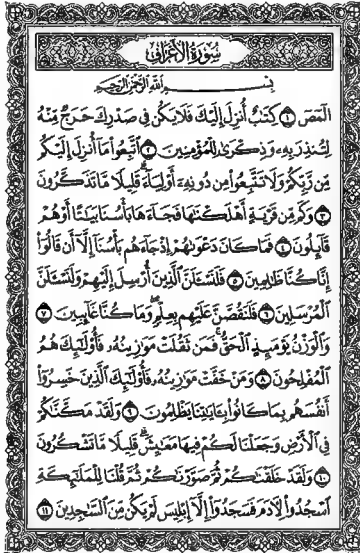 سُورَةُ الأَعْرَافِ
بِسْمِ اللَّهِ الرَّحْمَٰنِ الرَّحِيمِ
الٓمٓصٓ ١ كِتَٰبٌ أُنزِلَ إِلَيْكَ فَلَا يَكُن فِى صَدْرِكَ حَرَجٌ مِّنْهُ
لِتُنذِرَ بِهِۦ وَذِكْرَىٰ لِلْمُؤْمِنِينَ ٢ ٱتَّبِعُوا۟ مَآ أُنزِلَ إِلَيْكُم
مِّن رَّبِّكُمْ وَلَا تَتَّبِعُوا۟ مِن دُونِهِۦٓ أَوْلِيَآءَ ۗ قَلِيلًا مَّا تَذَكَّرُونَ
٣ وَكَم مِّن قَرْيَةٍ أَهْلَكْنَٰهَا فَجَآءَهَا بَأْسُنَا بَيَٰتًا أَوْ هُمْ
قَآئِلُونَ ٤ فَمَا كَانَ دَعْوَىٰهُمْ إِذْ جَآءَهُم بَأْسُنَآ إِلَّآ أَن قَالُوٓا۟
إِنَّا كُنَّا ظَٰلِمِينَ ٥ فَلَنَسْـَٔلَنَّ ٱلَّذِينَ أُرْسِلَ إِلَيْهِمْ وَلَنَسْـَٔلَنَّ
ٱلْمُرْسَلِينَ ٦ فَلَنَقُصَّنَّ عَلَيْهِم بِعِلْمٍ ۖ وَمَا كُنَّا غَآئِبِينَ ٧
وَٱلْوَزْنُ يَوْمَئِذٍ ٱلْحَقُّ ۚ فَمَن ثَقُلَتْ مَوَٰزِينُهُۥ فَأُو۟لَٰٓئِكَ هُمُ
ٱلْمُفْلِحُونَ ٨ وَمَنْ خَفَّتْ مَوَٰزِينُهُۥ فَأُو۟لَٰٓئِكَ ٱلَّذِينَ خَسِرُوٓا۟
أَنفُسَهُم بِمَا كَانُوا۟ بِـَٔايَٰتِنَا يَظْلِمُونَ ٩ وَلَقَدْ مَكَّنَّٰكُمْ
فِى ٱلْأَرْضِ وَجَعَلْنَا لَكُمْ فِيهَا مَعَٰيِشَ ۗ قَلِيلًا مَّا تَشْكُرُونَ
١٠ وَلَقَدْ خَلَقْنَٰكُمْ ثُمَّ صَوَّرْنَٰكُمْ ثُمَّ قُلْنَا لِلْمَلَٰٓئِكَةِ
ٱسْجُدُوا۟ لِـَٔادَمَ فَسَجَدُوٓا۟ إِلَّآ إِبْلِيسَ لَمْ يَكُن مِّنَ ٱلسَّٰجِدِينَ ١١